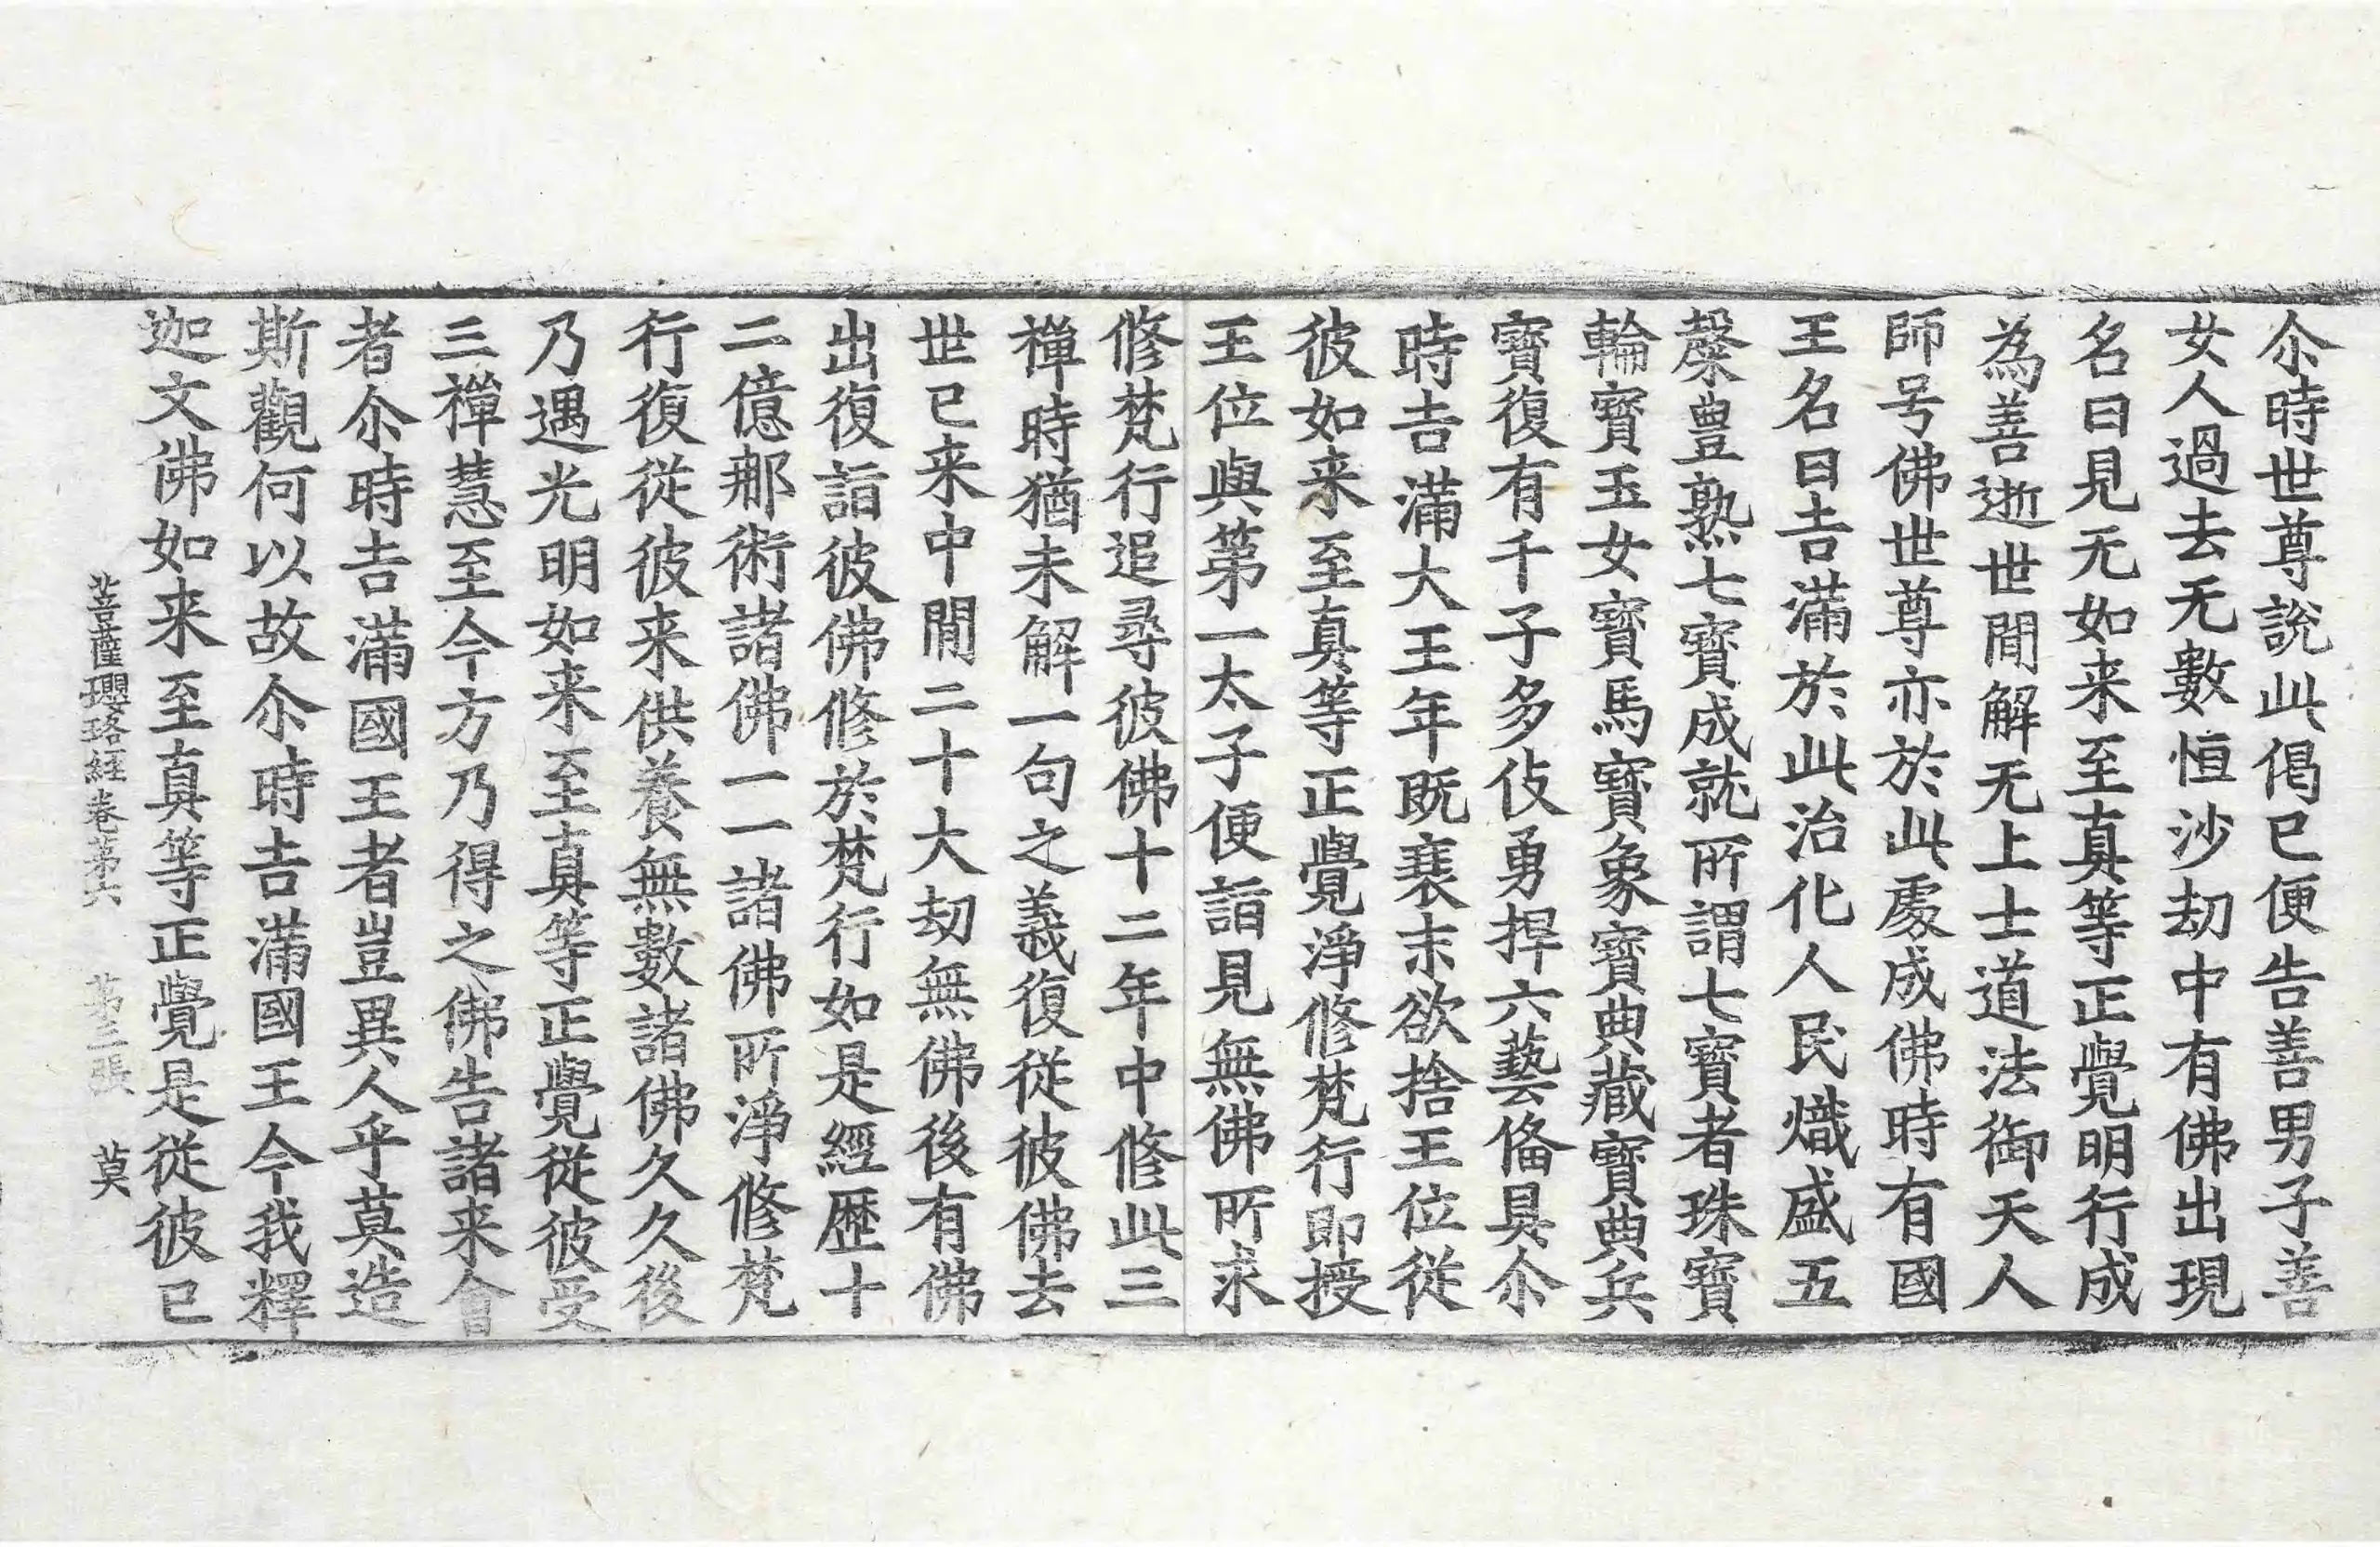 尒時世尊說此偈已便告善男子善
女人過去无數恒沙劫中有佛出現
名曰見无如来至真等正覺明行成
為善逝世間解无上士道法御天人
師号佛世尊亦於此處成佛時有國
王名曰吉滿於此治化人民熾盛五
糓豊熟七寶成就所謂七寶者珠寶
輪寶玉女寶馬寶象寶典藏寶典兵
寶復有千子多伎勇捍六藝俻具尒
時吉滿大王年既衰末欲捨王位從
彼如来至真等正覺淨修梵行即授
王位與第一太子便詣見無佛所求
修梵行追尋彼佛十二年中修此三
禅時猶未解一句之義復從彼佛去
世已来中間二十大劫無佛後有佛
出復詣彼佛修於梵行如是經歷十
二億那術諸佛一一諸佛所淨修梵
行復從彼来供養無數諸佛久久後
乃遇光明如来至真等正覺從彼受
三禅慧至今方乃得之佛告諸来會
者尒時吉滿國王者豈異人乎莫造
斯觀何以故尒時吉滿國王今我釋
迦文佛如来至真等正覺是從彼已
菩薩瓔珞經卷第六 第三張 莫